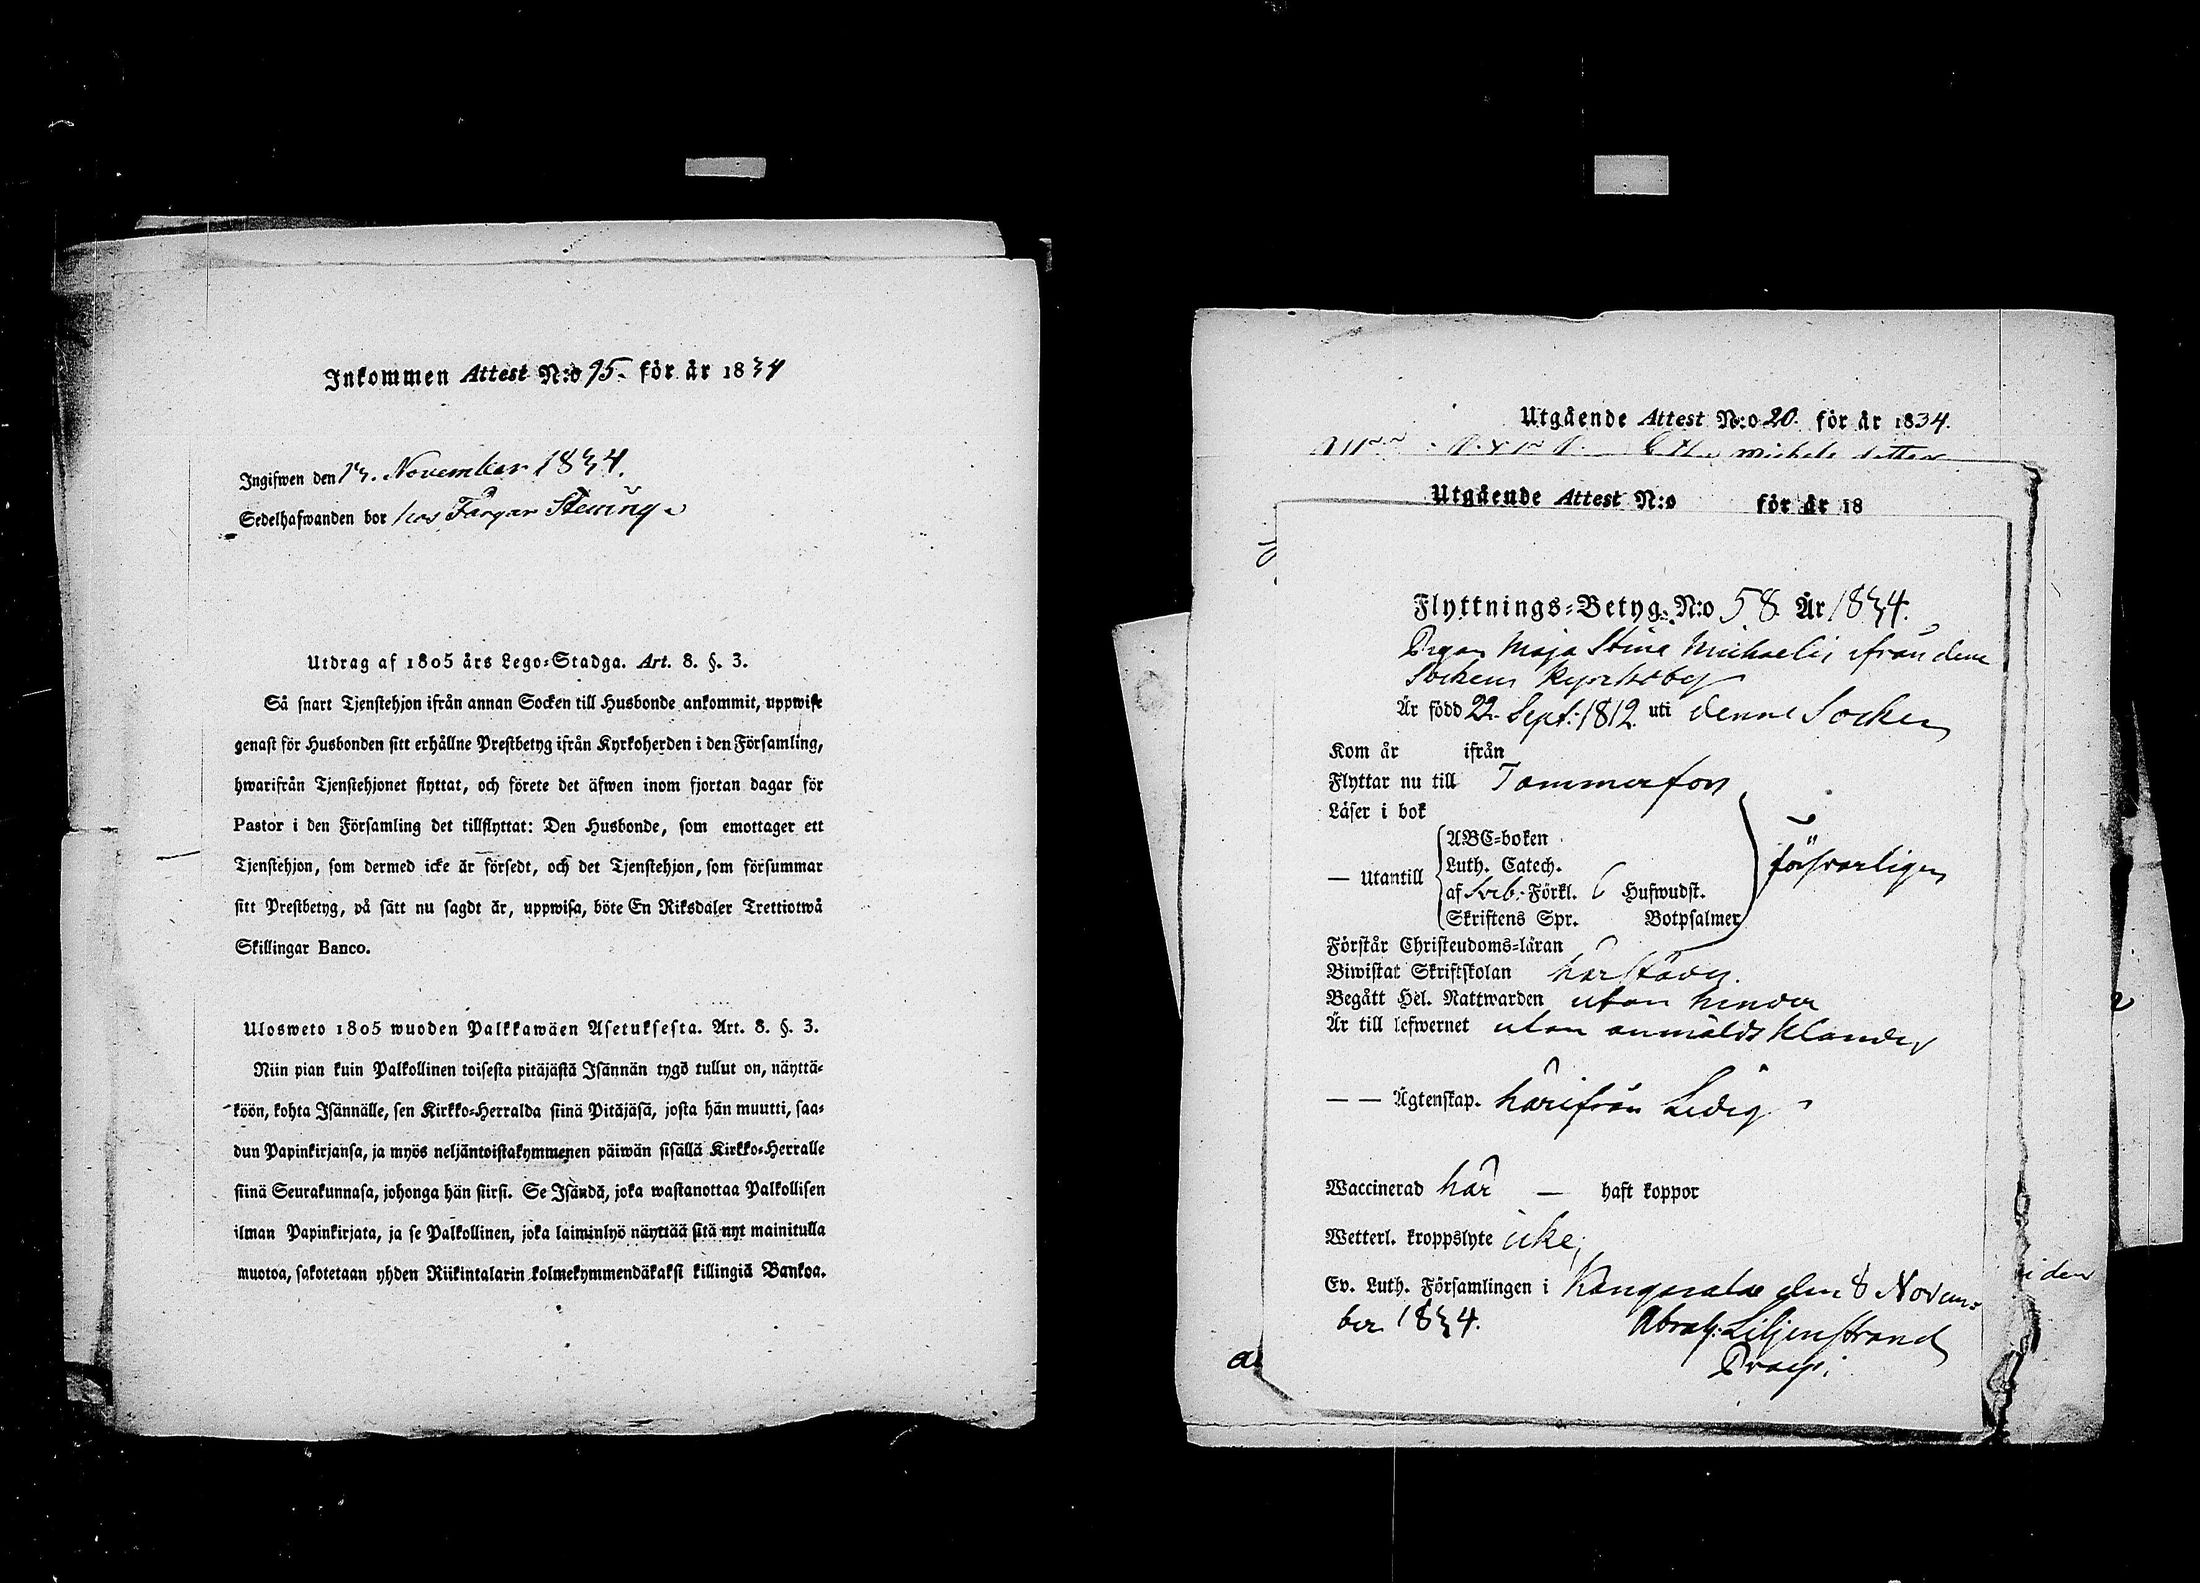 Inkommen Attest N:o 95. för år 1834
Ingifwen den 13. November 1834.
Sedelhafwanden bor hos Färgar
Utdrag af 1805 års Lego=Stadga. Art. 8. §. 3.
Så snart Tjenstehjon ifrån annan Socken till Husbonde ankommit, uppwise
genast för Husbonden sitt erhållne Prestbetyg ifrån Kyrkoherden i den Församling,
hwarifrån Tjenstehjonet flyttat, och förete det äfwen inom fjortan dagar för
Pastor i den Församling det tillflyttat: Den Husbonde, som emottager ett
Tjenstehjon, som dermed icke är försedt, och det Tjenstehjon, som försummar
sitt Prestbetyg, på sätt nu sagdt är, uppwisa, böte En Riksdaler Trettiotwå
Skillingar Banco.
Ulosweto 1805 wuoden Palkkawäen Asetuksesta. Art. 8. §. 3.
Niin pian kuin Palkollinen toisesta pitäjästä Isännän tygö tullut on, näyttä=
köön, kohta Isännälle, sen Kirkko=Herralda siinä Pitäjäsä, josta hän muutti, saa=
dun Papinkirjansa, ja myös neljäntoistakymmenen päiwän sisällä Kirkko=Herralle
siinä Seurakunnasa, johonga hän siirsi. Se Isändä, joka wastanottaa Palkollisen
ilman Papinkirjata, ja se Palkollinen, joka laiminlyö näyttää sitä nyt mainitulla
muotoa, sakotetaan yhden Riikintalarin kolmekymmendäkaksi killingiä Bankoa.
Utgående Attest N:o 20. för år 1834.
Utgående Attest N:o för år 18
Flyttnings=Betyg. N:o 58 År 1834.
Pigan Maja Stina Michaelis. ifrån denne
Sockens Kyrkoby
Är född 22. Sept: 1812. uti denne Socken
Kom år ifrån
Flyttar nu till Tammerfors
Läser i bok
ABC=boken
Luth. Catech.
— Utantill
försvarligen
af Sveb. Förkl. 6 Hufwudst.
Skriftens Spr. Botpsalmer
Förstår Christendoms=läran
Biwistat Skriftskolan härstädes.
Begått Hel. Nattwarden utan hinder
Är till lefwernet utan anmäldt klander
— — Ägtenskap. härifrån Ledig
Waccinerad här — haft koppor
Wetterl. kroppslyte icke,
Ev. Luth. Församlingen i Kangasala den 8 Novem=
ber 1834. Abrah: Liljenstrand